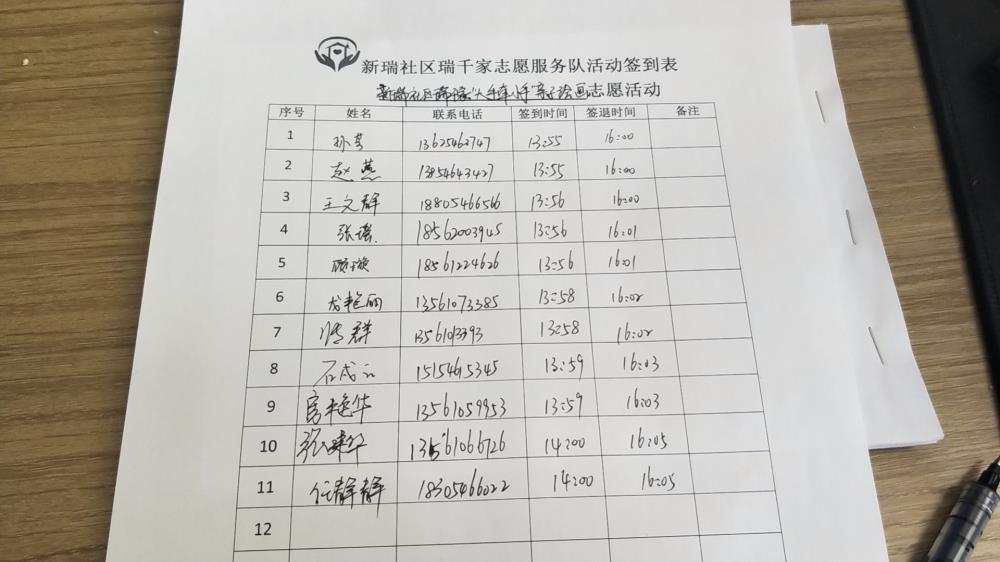 新瑞社区瑞千家志愿服务队活动签到表
新瑞社区 "大手牵小手"亲子绘画志愿活动
序号 姓名 联系电话 签到时间 签退时间 备注
1 孙 13625462747 13:55 16:00
2 赵燕 13854643427 13:55 16:00
3 王文群 18805466566 13:56 16:00
4 张瑶 18562003945 13:56 16:01
5 顾璇 18561224626 13:56 16:01
6 尤艳丽 13561073385 13:58 16:02
7 群 13:58 16:02
8 石成云 15154615345 13:59 16:03
9 官艳华 13561059953 13:59 16:03
10 张 13561066726 14:00 16:05
11 任静静 18305466022 14:00 16:05
12